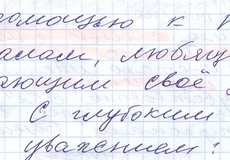 помощью к
алам, любящ
ающим своё
С глубоким
уважением: